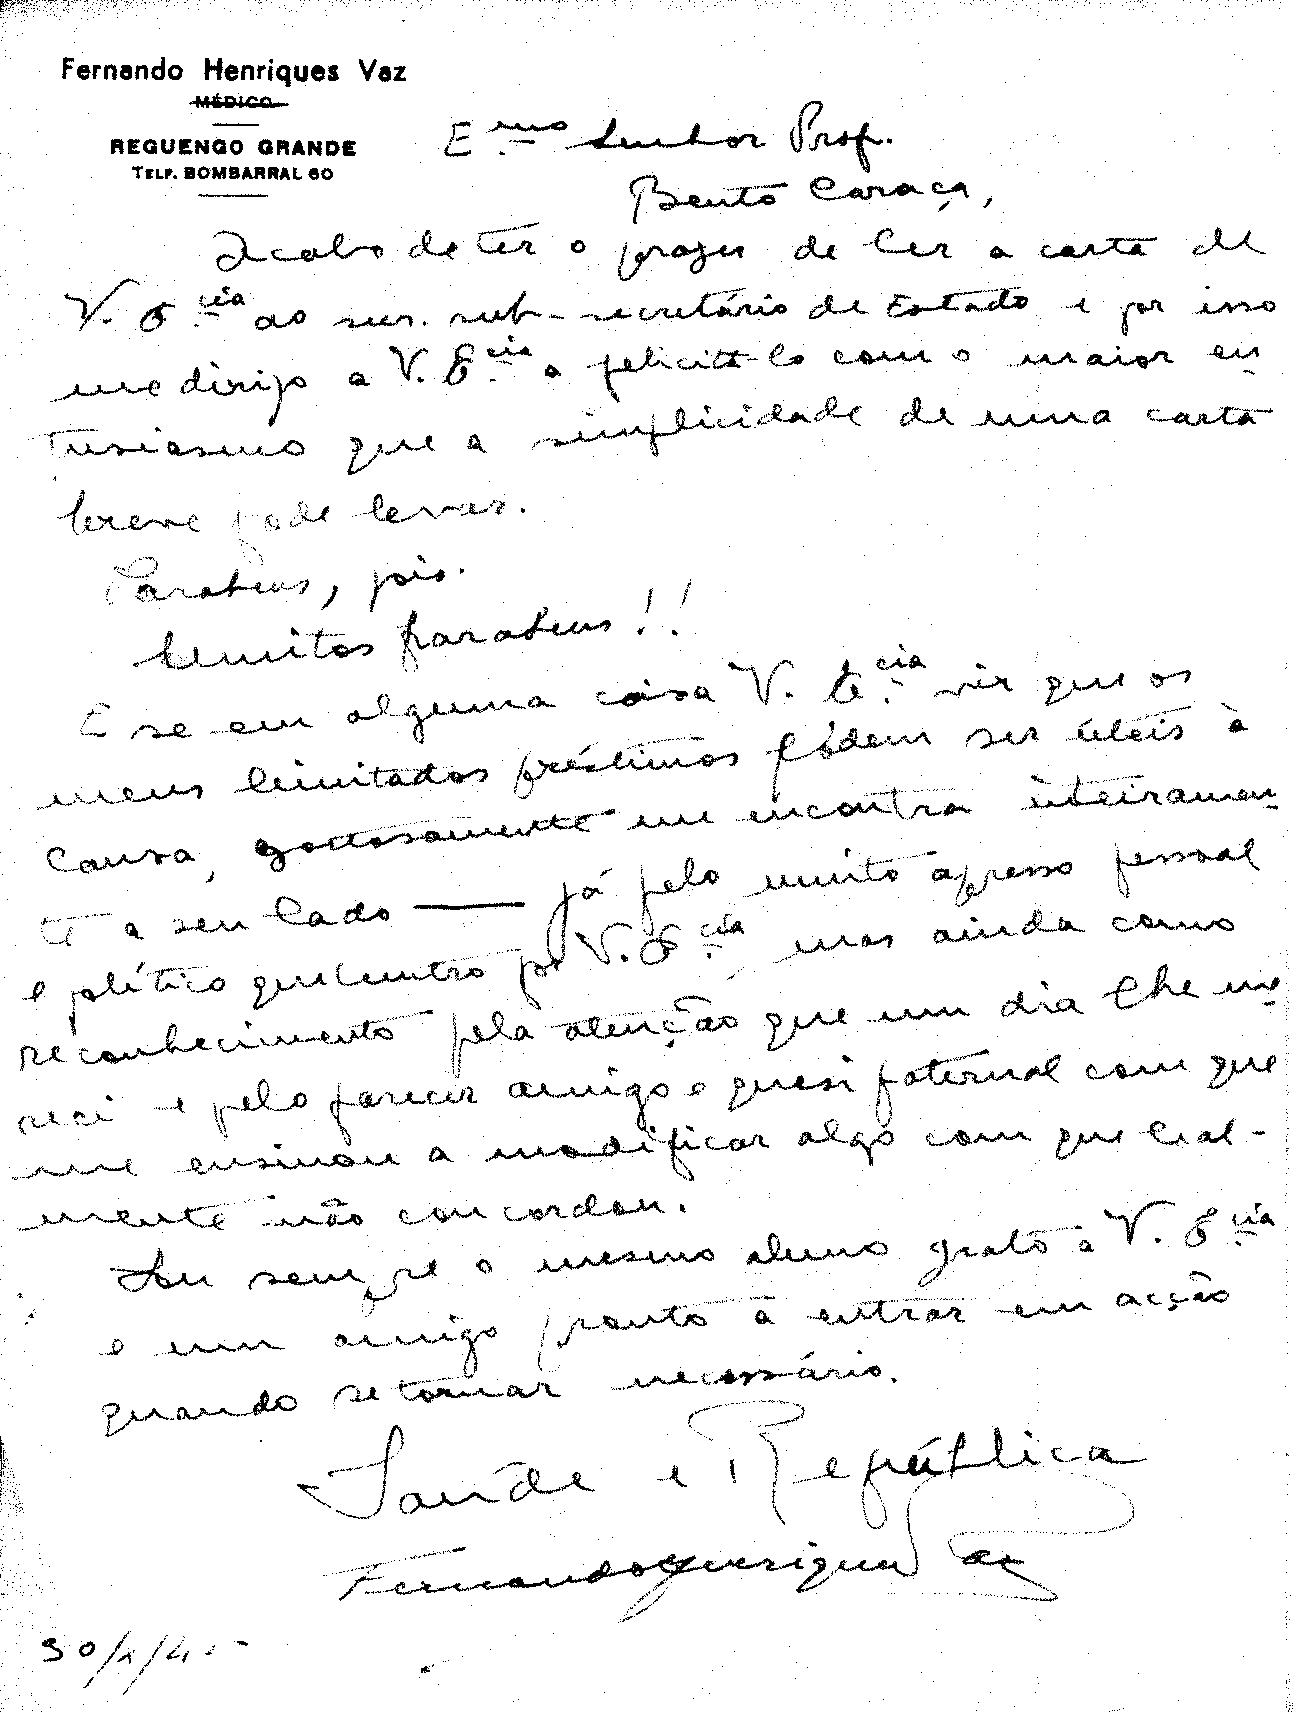 Fernando Henriques Vaz
MÉDICO
REGUENGO GRANDE
TELF. BOMBARRAL 60
E.mo Senhor Prof.
Bento Caraça,
Acabo de ter o prazer de ler a carta de
V. E.cia ao snr. sub-secretário de Estado e por isso
me dirijo a V. E.cia a felicitá-lo com o maior en
tusiasmo que a simplicidade de uma carta
breve pode levar.
Parabens, pois.
Muitos parabens!!
E se em alguma coisa V. E.cia vir que os
meus limitados préstimos pódem ser úteis à
causa, gostosamente me encontra inteiramen-
te a seu lado — já pelo muito apreso pessoal
e político que nutro por V. E.cia, mas ainda como
reconhecimento pela atenção que um dia lhe me
reci e pelo parecer amigo e quasi paternal com que
me ensinou a modificar algo com que leal-
mente não concordou.
Sou sempre o mesmo aluno grato a V. E.cia
e um amigo pronto a entrar em acção
quando se tornar necessário.
Saúde e República
Fernando Henriques Vaz
30/X/4